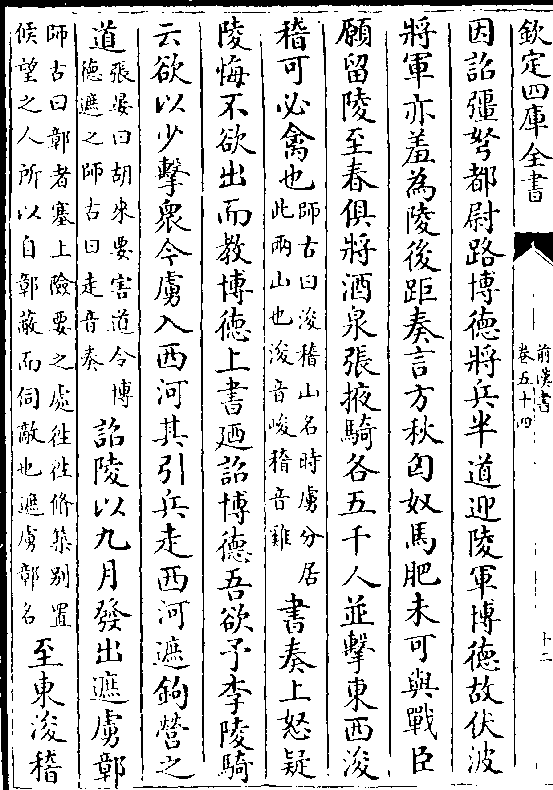 欽定四庫全書
前漢書
卷五十四
十二
因詔彊弩都尉路博德將兵半道迎陵軍博德故伏波
將軍亦羞為陵後距奏言方秋匈奴馬肥未可與戰臣
願留陵至春俱將酒泉張掖騎各五千人並擊東西浚
稽可必禽也師古曰浚稽山名時虜分居此兩山也浚音峻稽音雞書奏上怒疑
陵悔不欲出而教博德上書廼詔博德吾欲予李陵騎
云欲以少擊衆今虜入西河其引兵走西河遮鉤營之
道張晏曰胡來要害道令博德遮之師古曰走音奏詔陵以九月發出遮虜鄣
師古曰鄣者塞上險要之處往往修築别置候望之人所以自鄣蔽而伺敵也遮虜鄣名至東浚稽